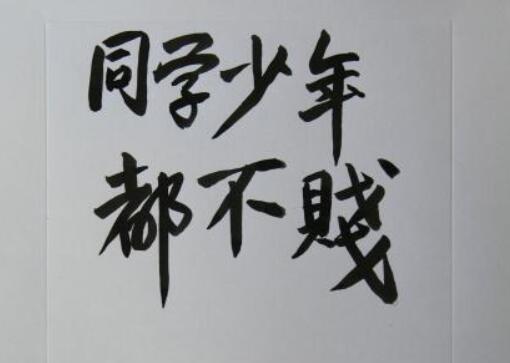 同学少年
都不賤